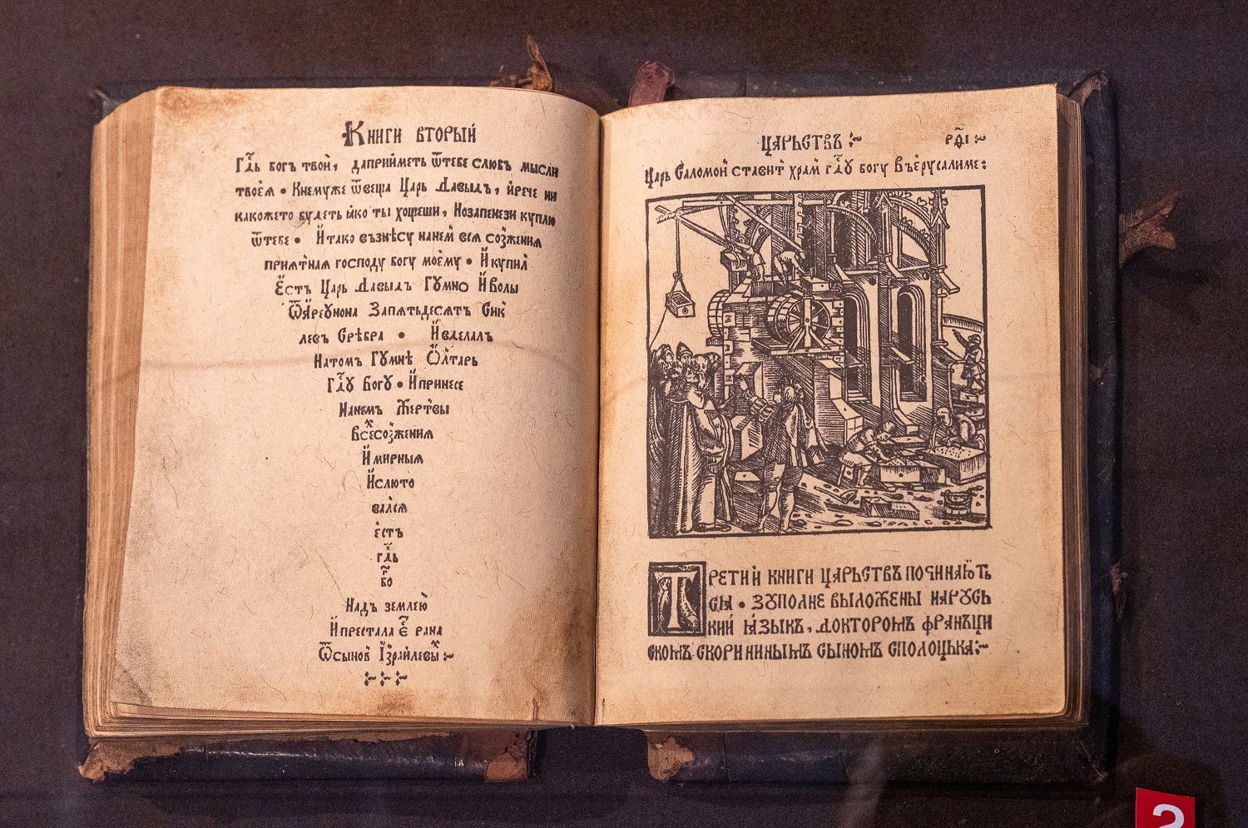 Книги вторый
Гд҃ь богъ твой, даприиметь ѿтебе слюбъ мысли
твоея • Кнемуже ѿвеща Царь Давыдъ, ирече ни
какожето будеть ꙗко ты хощеши, Нозапенези куплю
ѿтебе • Итако възнѣсу нанем вся созжения
приятная господу богу моему • Икупил
Есть Царь Давыдъ Гумно Иволы
ѾАреунона Запятьдесятъ Сик
левъ Срѣбра • Ивделалъ
Натомъ Гумнѣ Олтарь
Гд҃у Богу • Ипринесе
Нанемъ Жертвы
Всесозжения
Имирныя
Ислюто
вался
есть
гд҃ь
бо
Надъ землею
Ипрестала е рана
Ѿсынов Їзраилевы
Царьствъ
Царь Саломон ставит храм гд҃у богу Въерусалиме:
Третий книги царьствъ починають
ся • Зуполне выложены нарусь
кий языкъ, докторомъ франъци
скомъ скорининымъ сыномъ сполоцька
2